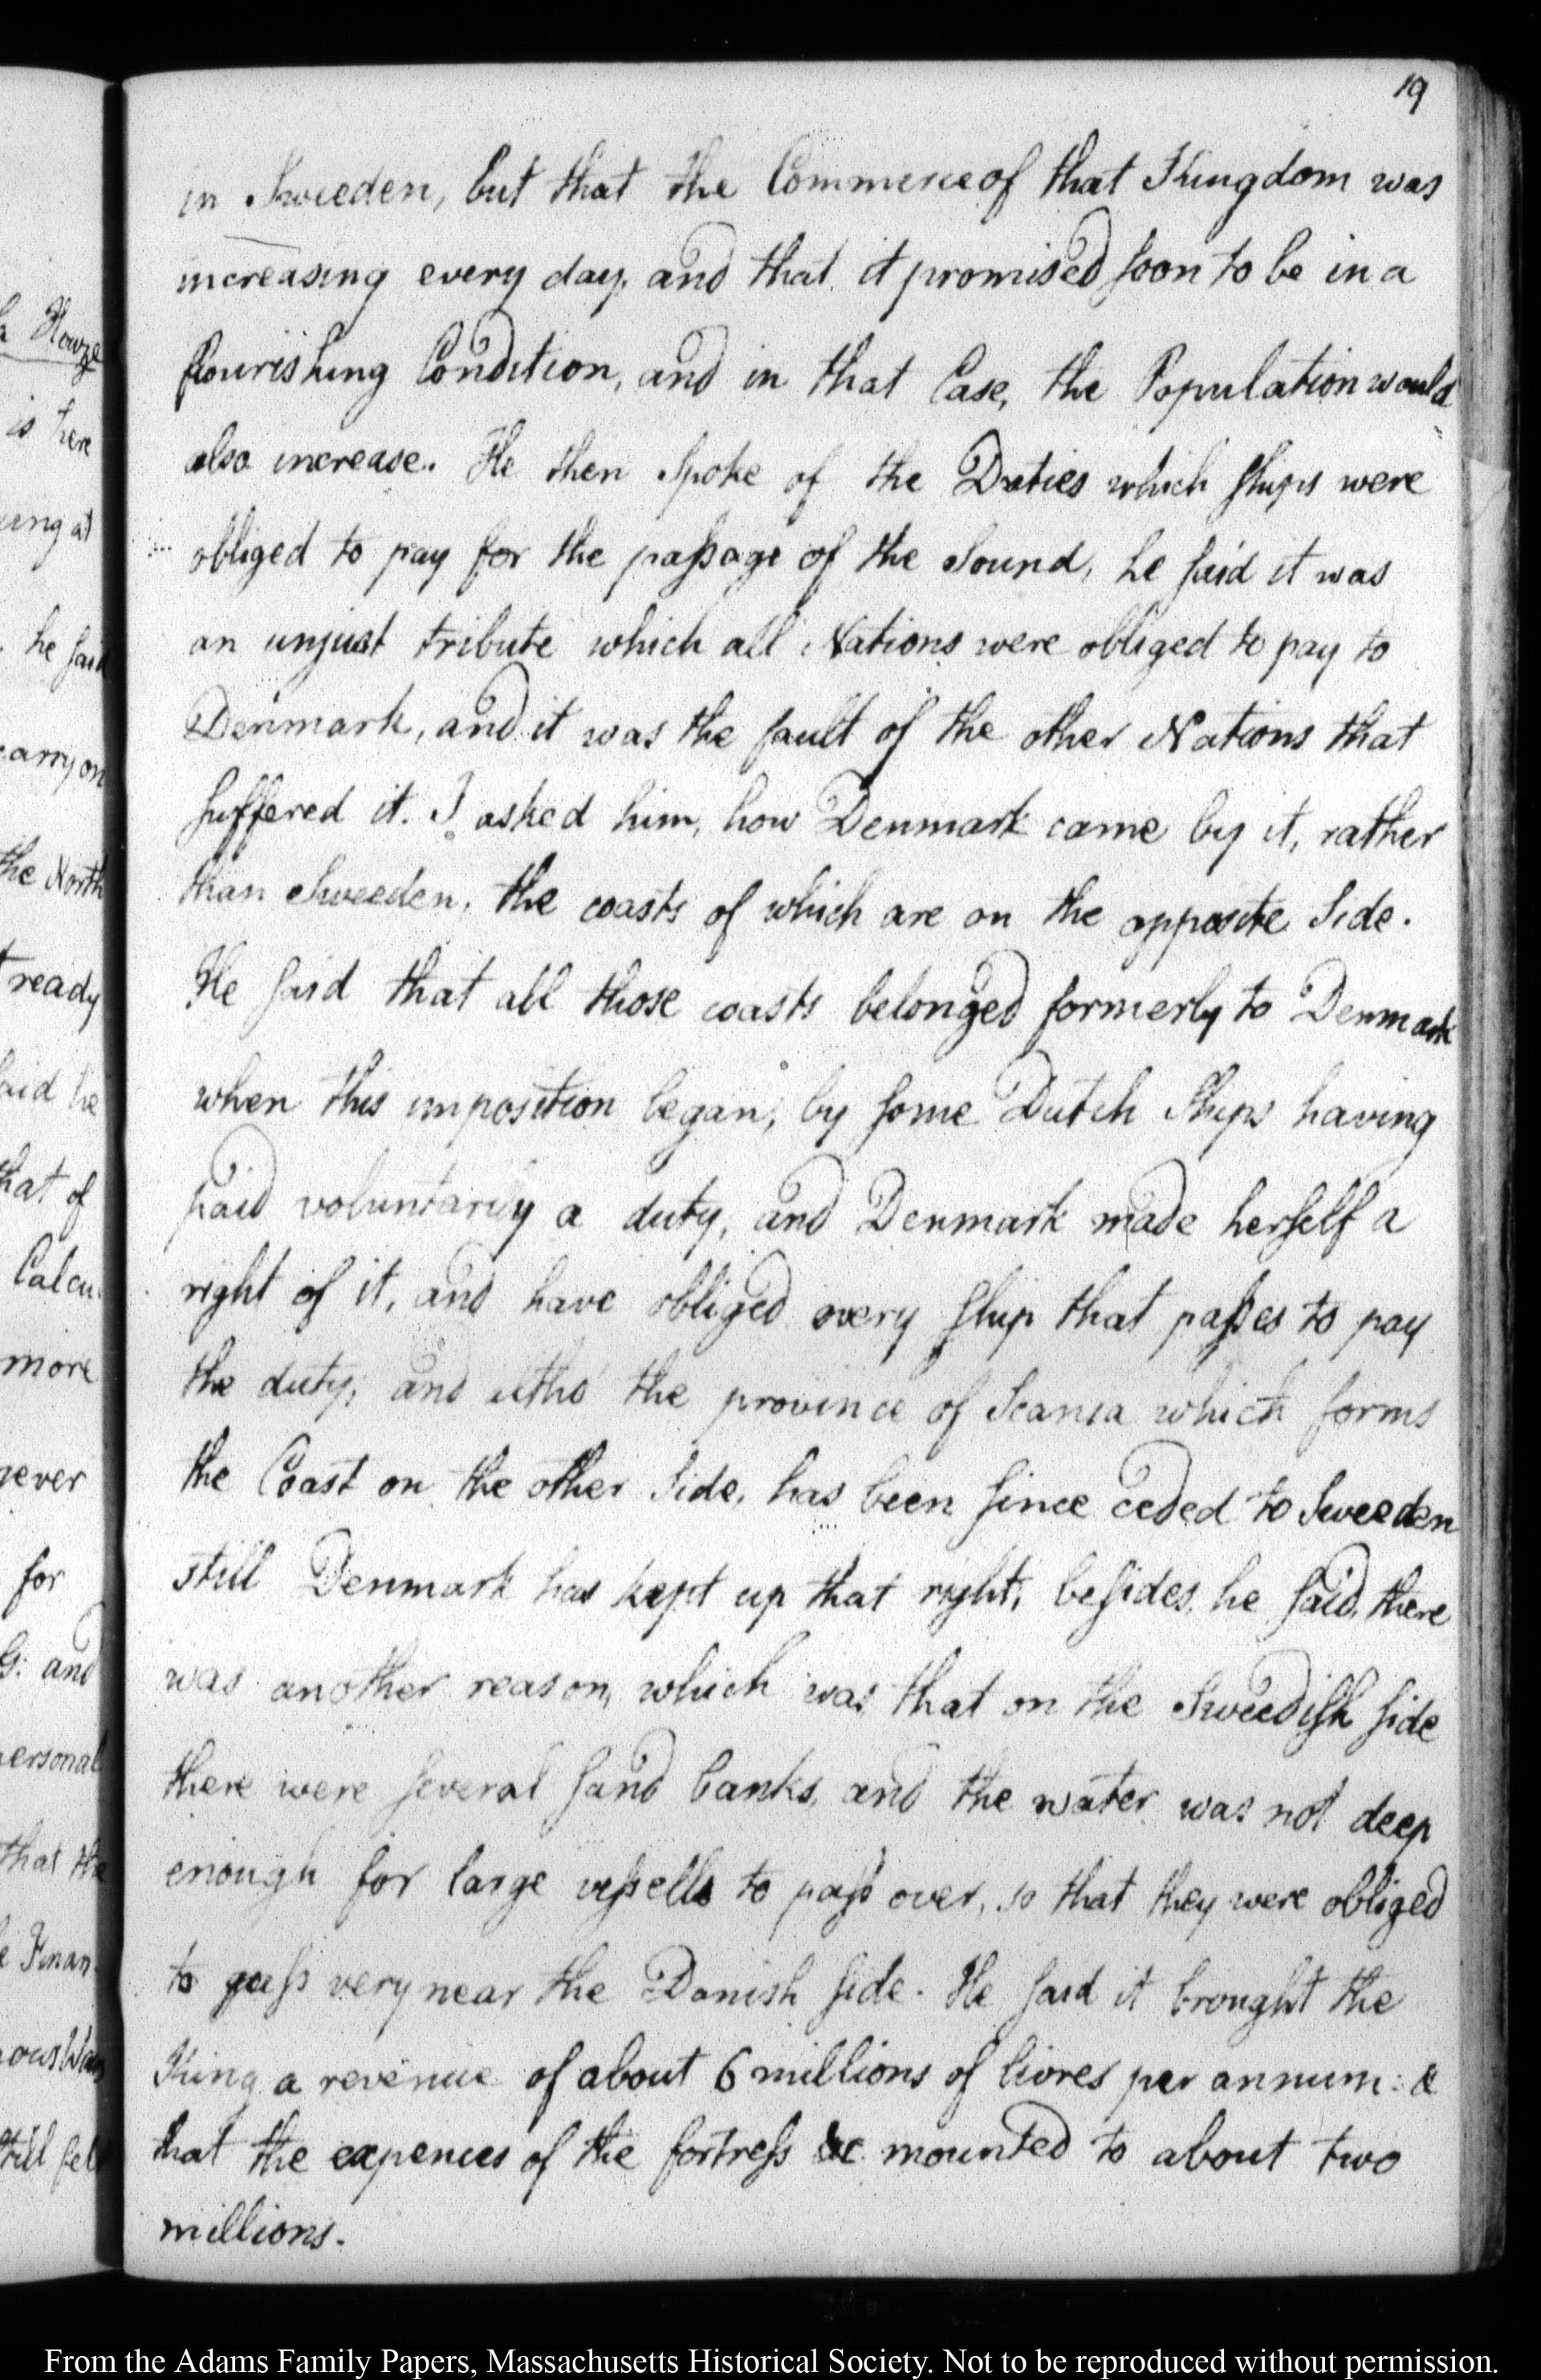 19
in Sweeden, but that the Commerce of that Kingdom was
increasing every day, and that it promised soon to be in a
flourishing Condition, and in that Case, the Population would
also increase. He then spoke of the Duties which ships were
obliged to pay for the passage of the Sound, he said it was
an unjust tribute which all Nations were obliged to pay to
Denmark, and it was the fault of the other Nations that
suffered it. I asked him, how Denmark came by it, rather
than Sweeden, the coasts of which are on the opposite Side.
He said that all those coasts belonged formerly to Denmark
when this imposition began, by some Dutch Ships having
paid voluntarily a duty, and Denmark made herself a
right of it, and have obliged every ship that passes to pay
the duty, and altho' the province of Scania which forms
the Coast on the other Side, has been since ceded to Sweeden
still Denmark has kept up that right, besides, he said, there
was another reason, which was that on the Sweedish side
there were several sand banks, and the water was not deep
enough for large vessells to pass over, so that they were obliged
to pass very near the Danish side. He said it brought the
King a revenue of about 6 millions of livres per annum: &
that the expences of the fortress &c mounted to about two
millions.
Howze
is here
ing at
he said
carry on
the North
ready
said he
that of
Calcu
more
never
for
G: and
personal
that the
Finan
still fel
From the Adams Family Papers, Massachusetts Historical Society. Not to be reproduced without permission.